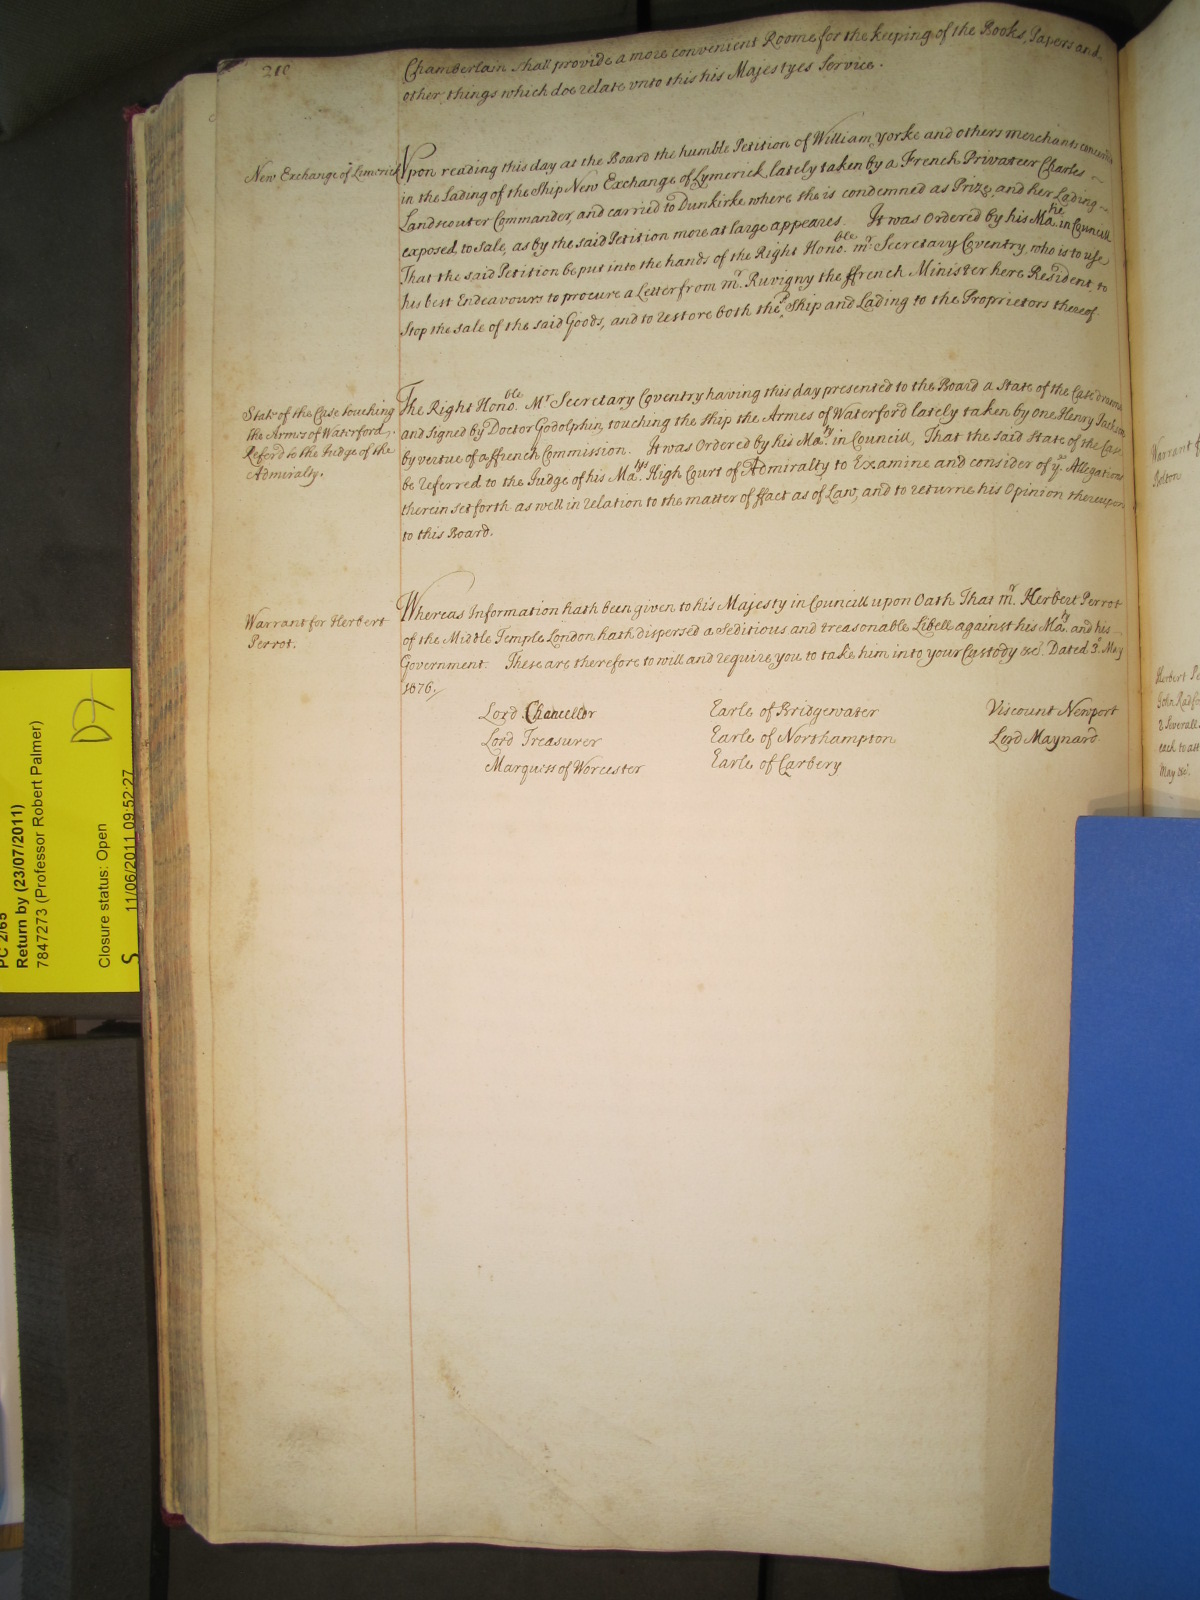 210
Chamberlain shall provide a more convenient Roome for the keeping of the Books, Papers and
other things which doe relate vnto this his Majestyes Service.
New Exchange of Limerick
Vpon reading this day at the Board the humble Petition of William Yorke and others merchants concerned
in the Lading of the Ship New Exchange of Lymerick, lately taken by a French Privateer Charles
Landscouter Commander, and carried to Dunkirke where she is condemned as Prize, and her Lading
exposed to Sale, as by the said Petition more at large appeares. It was Ordered by his Matie in Councill
That the said Petition be put into the hands of the Right Honoble mr Secretary Coventry, who is to use
his best Endeavours to procure a Letter from mr Ruvigny the ffrench Minister here Resident, to
stop the sale of the said Goods, and to restore both the sd Ship and Lading to the Proprietors thereof
State of the Case touching
the Armes of Waterford,
Referd to the Judge of the
Admiralty.
The Right Honoble Mr Secretary Coventry having this day presented to the Board a State of the Case drawne
and signed by Doctor Godolphin, touching the ship the Armes of Waterford lately taken by one Henry Jackson
by vertue of a ffrench Commission. It was Ordered by his Maty in Councill, That the said State of the Case
be referred to the Judge of his Matys High Court of Admiralty to Examine and consider of ye Allegations
therein set forth as well in relation to the matter of ffact as of Law, and to returne his Opinion thereupon
to this Board.
Warrant for Herbert
Perrot.
Whereas Information hath been given to his Majesty in Councill upon Oath That mr Herbert Perrot
of the Middle Temple London hath dispersed a seditious and treasonable Libell against his Maty and his
Government. These are therefore to will and require you to take him into your Custody &c. Dated 3d May
1676.
Lord Chancellor Earle of Bridgewater Viscount Newport
Lord Treasurer Earle of Northampton Lord Maynard
Marquiss of Worcester Earle of Carbery
Warrant f
Herbert Pe
John Radfo
2 Severall
each to att
May &c.
PC 2/65
Return by (23/07/2011)
7847273 (Professor Robert Palmer)
Closure status: Open
S 11/06/2011 09:52:27
D7